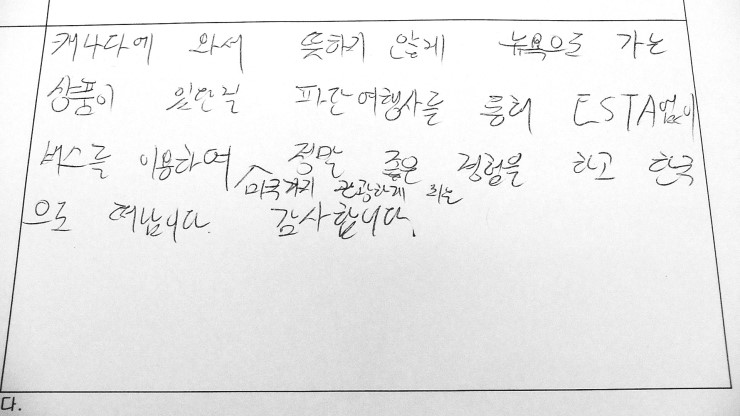 캐나다에 와서 뜻하지 않게 뉴욕으로 가는
상품이 있단걸 파란여행사를 통해 ESTA없이
버스를 이용하여 정말 좋은 경험을 하고 한국
미국까지 관광하게 되는
으로 떠납니다. 감사합니다.
다.